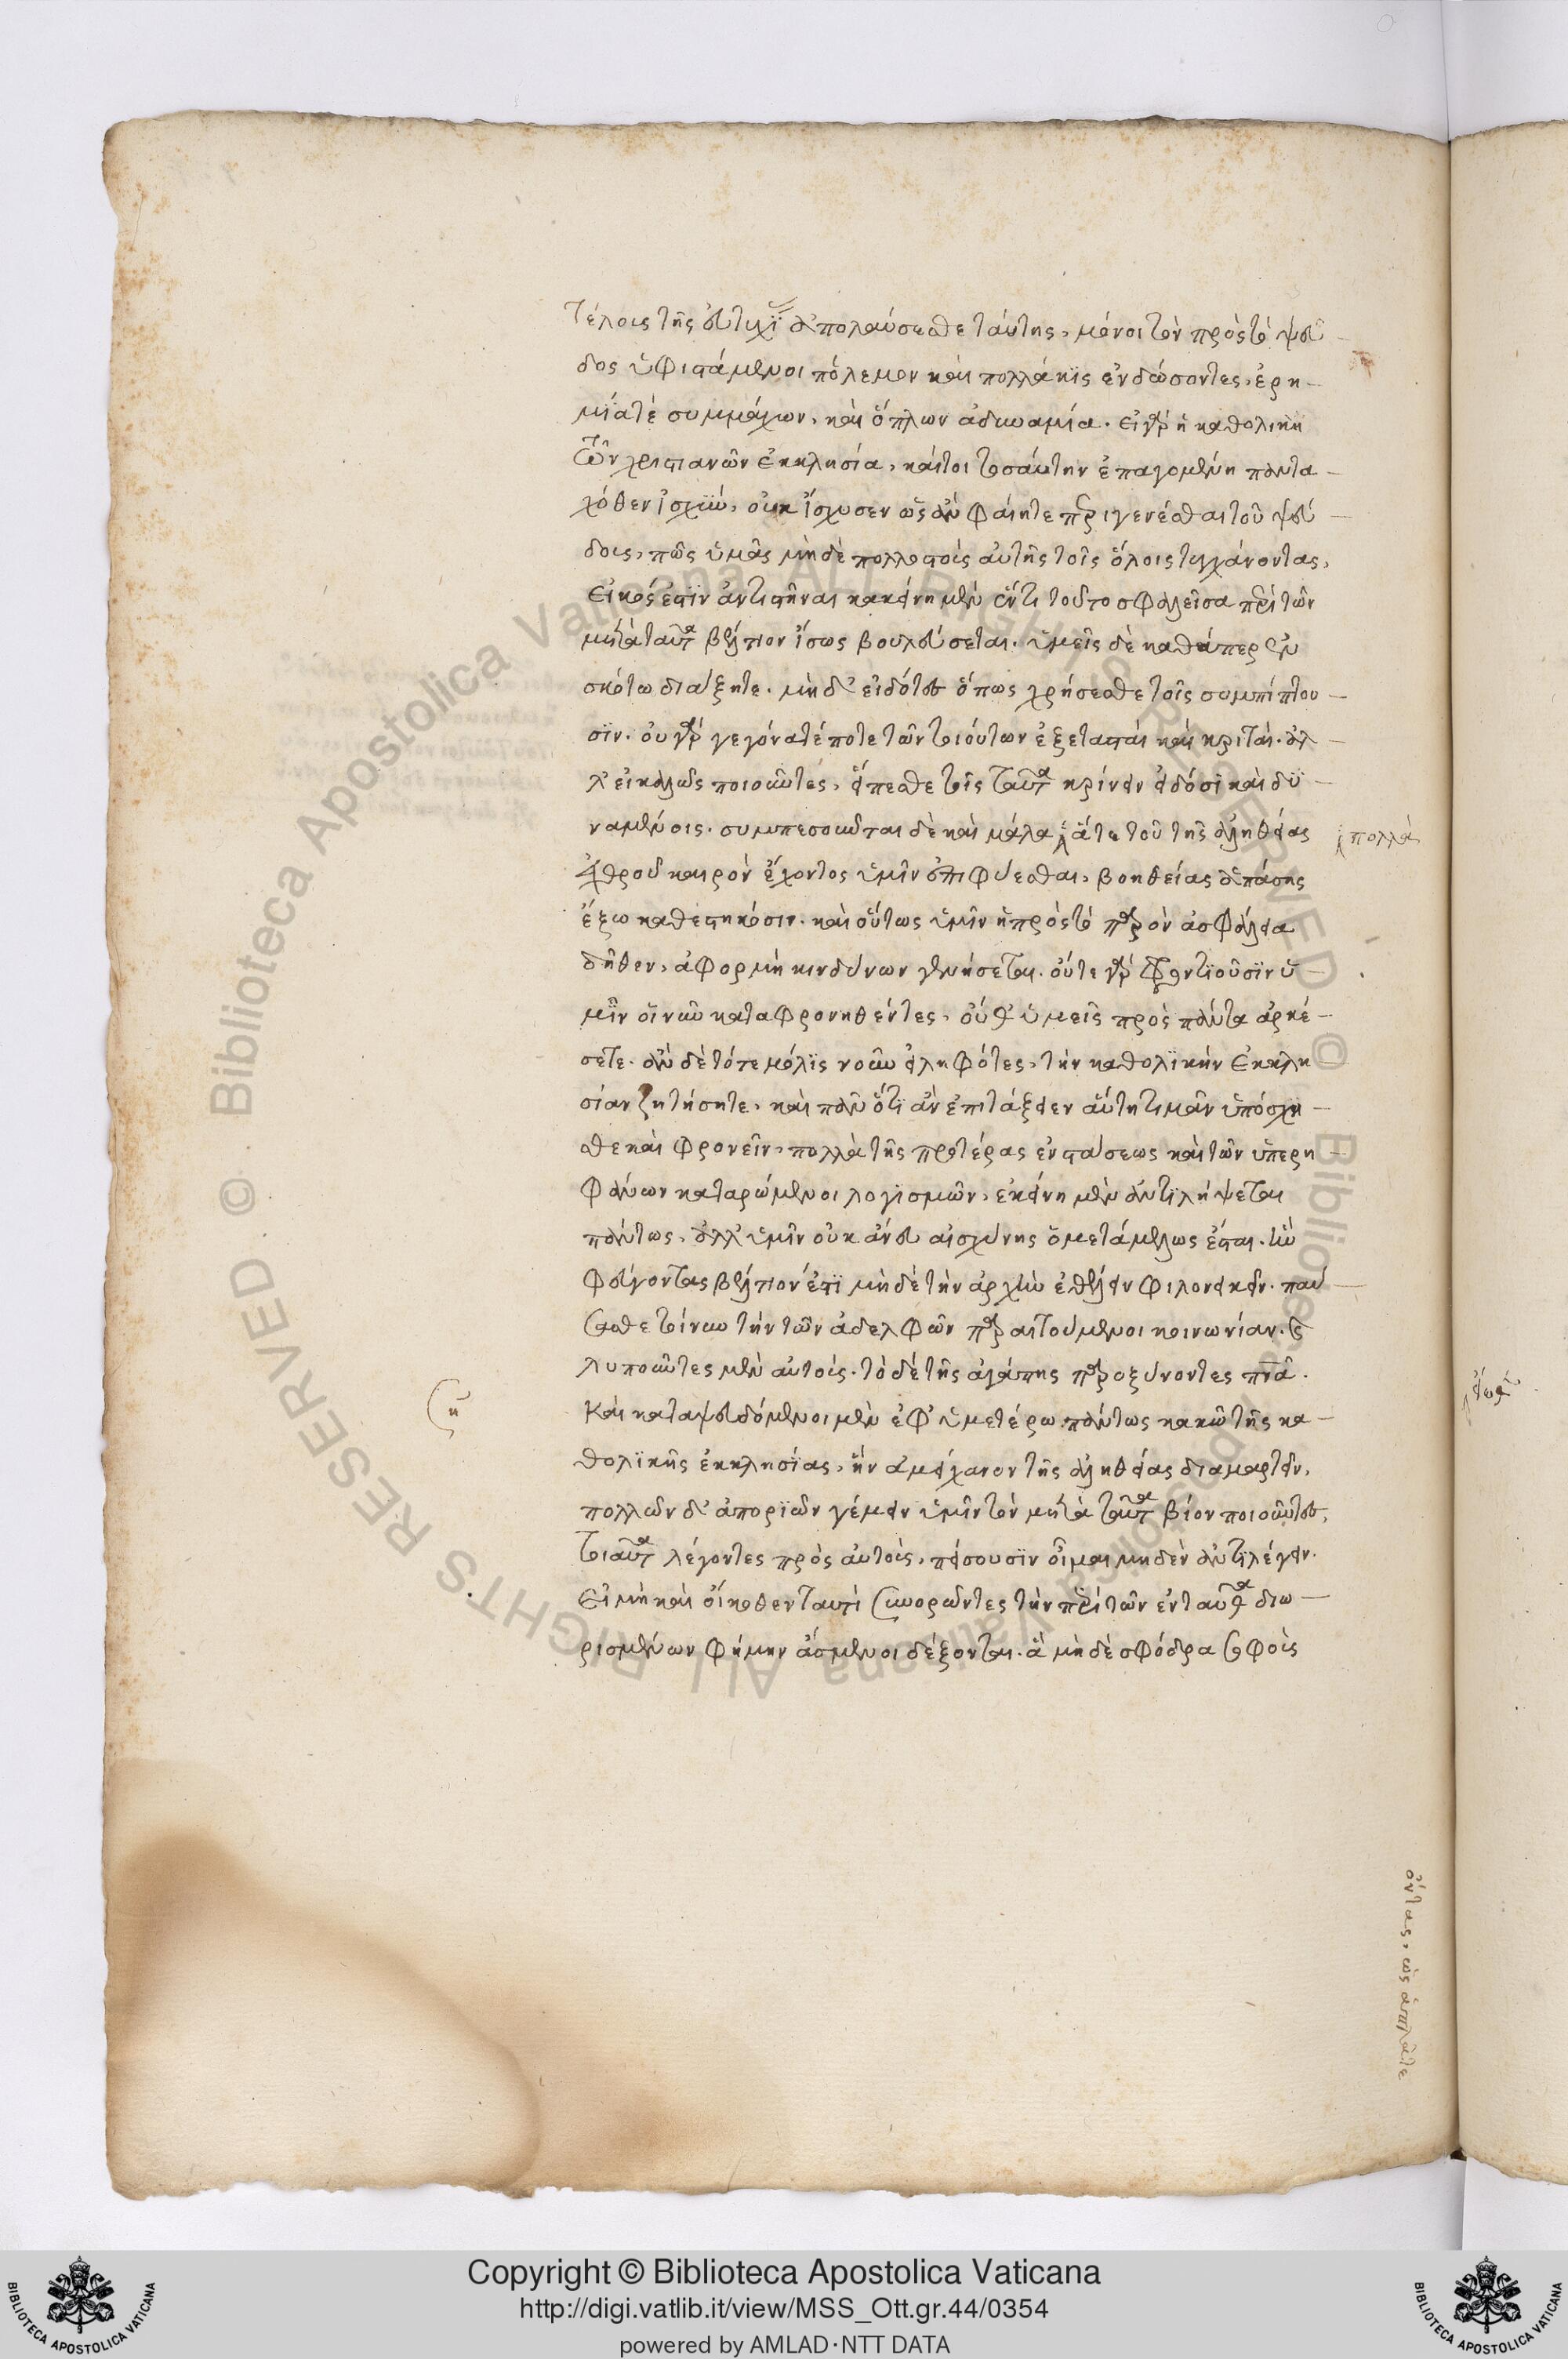 τέλους τῆς εὐτυχΐ ἀπολαύσεσθε ταύτης, μόνοι τὸν πρὸς τὸ ψεῦ
δος ὑφιστάμενοι πόλεμον καὶ πολλάκις ἐνδώσοντες, ἐρη-
μίατὲ συμμάχων, καὶ ὅπλων ἀδυναμία. εἰ γὰρ ἡ καθολικὴ
τῶν χριστιανῶν ἐκκλησία, καίτοι τοσαύτην ἐπαγομένη παντα-
χόθεν ἰσχὺν, οὐκ ἴσχυσεν ὡς ἂν φαίητε περιγενέσθαι τοῦ ψεύ-
δους, πῶς ὑμᾶς μηδὲ πολλοστοὺς αὐτῆς τοῖς ὅλοις τυγχάνοντας,
εἰκός ἐστιν ἀντιστῆναι κακείνη μὲν ἔντι τοῦτο σφαλεῖσα περὶ τῶν
μετὰ ταῦτα βέλτιον ἴσως βουλεύσεται. ὑμεῖς δὲ καθάπερ ἐν
σκότω διάξητε. μὴ δ' εἰδότες ὅπως χρήσεσθε τοῖς συμπίπτου-
σιν. οὐ γὰρ γεγόνατέ ποτε τῶν τοιούτων ἐξετασταὶ καὶ κριταί. ἀλ-
λ' εἰκαλῶς ποιοῦντες, εἵπεσθε τοῖς ταῦτα κρίνειν εἰδόσι καὶ δυ-
ναμένοις. συμπεσοῦνται δὲ καὶ μάλα ἅτε τοῦ τῆς ἀληθείας
πολλὰ
ἐχθροῦ καιρὸν ἔχοντος ὑμῖν ἐπιφύεσθαι, βοηθείας ἁπάσης
ἔξω καθεστηκόσιν. καὶ οὕτως ὑμῖν ἡ πρὸς τὸ παρὸν ἀσφάλεια
δῆθεν, ἀφορμὴ κινδύνων γενήσεται. οὔτε γὰρ φροντιοῦσιν ὑ-
μῖν οἱ νῦν καταφρονηθέντες, οὔθ' ὑμεῖς πρὸς πάντα ἀρκέ-
σετε. ἂν δὲ τότε μόλις νοῦν εἰληφότες, τὴν καθολικὴν ἐκκλη
σίαν ζητήσητε, καὶ πᾶν ὅτι ἂν ἐπιτάξειεν αὕτη τιμᾶν ὑπόσχη-
σθε καὶ φρονεῖν, πολλὰ τῆς προτέρας ἐνστάσεως καὶ τῶν ὑπερη-
φάνων καταρώμενοι λογισμῶν, ἐκείνη μὲν ἀντιλήψεται
πάντως. ἀλλ' ὑμῖν οὐκ ἄνευ αἰσχύνης ὁ μετάμελως ἔσται. ἣν
φεύγοντας βέλτιον ἐστὶ μηδὲ τὴν ἀρχὴν ἐθέλειν φιλονεικεῖν. παύ-
σασθε τοίνυν τὴν τῶν ἀδελφῶν παραιτούμενοι κοινωνίαν. καὶ
λυποῦντες μὲν αὐτούς. τὸ δὲ τῆς ἀγάπης παροξύνοντες πνᾶ.
καὶ καταψευδόμενοι μὲν ἐφ' ὑμετέρω πάντως κακῶ τῆς κα-
θολικῆς ἐκκλησίας, ἣν ἀμήχανον τῆς ἀληθείας διαμαρτεῖν,
πολλῶν δ' ἀποριῶν γέμειν ὑμῖν τὸν μετὰ ταῦτα βίον ποιοῦντες,
τοιαῦτα λέγοντες πρὸς αὐτοὺς, πείσουσιν οἶμαι μηδὲν ἀντιλέγειν.
εἰ μὴ καὶ οἴκοθεν ταυτὶ συνορῶντες τὴν περὶ τῶν ἐνταῦθα διω-
ρισμένων φήμην ἄσμενοι δέξονται. ἃ μὴ δὲ σφόδρα σοφοὺς
ὄντας, ὡς ἁπλῶς τε
Copyright © Biblioteca Apostolica Vaticana
http://digi.vatlib.it/view/MSS_Ott.gr.44/0354
powered by AMLAD·NTT DATA